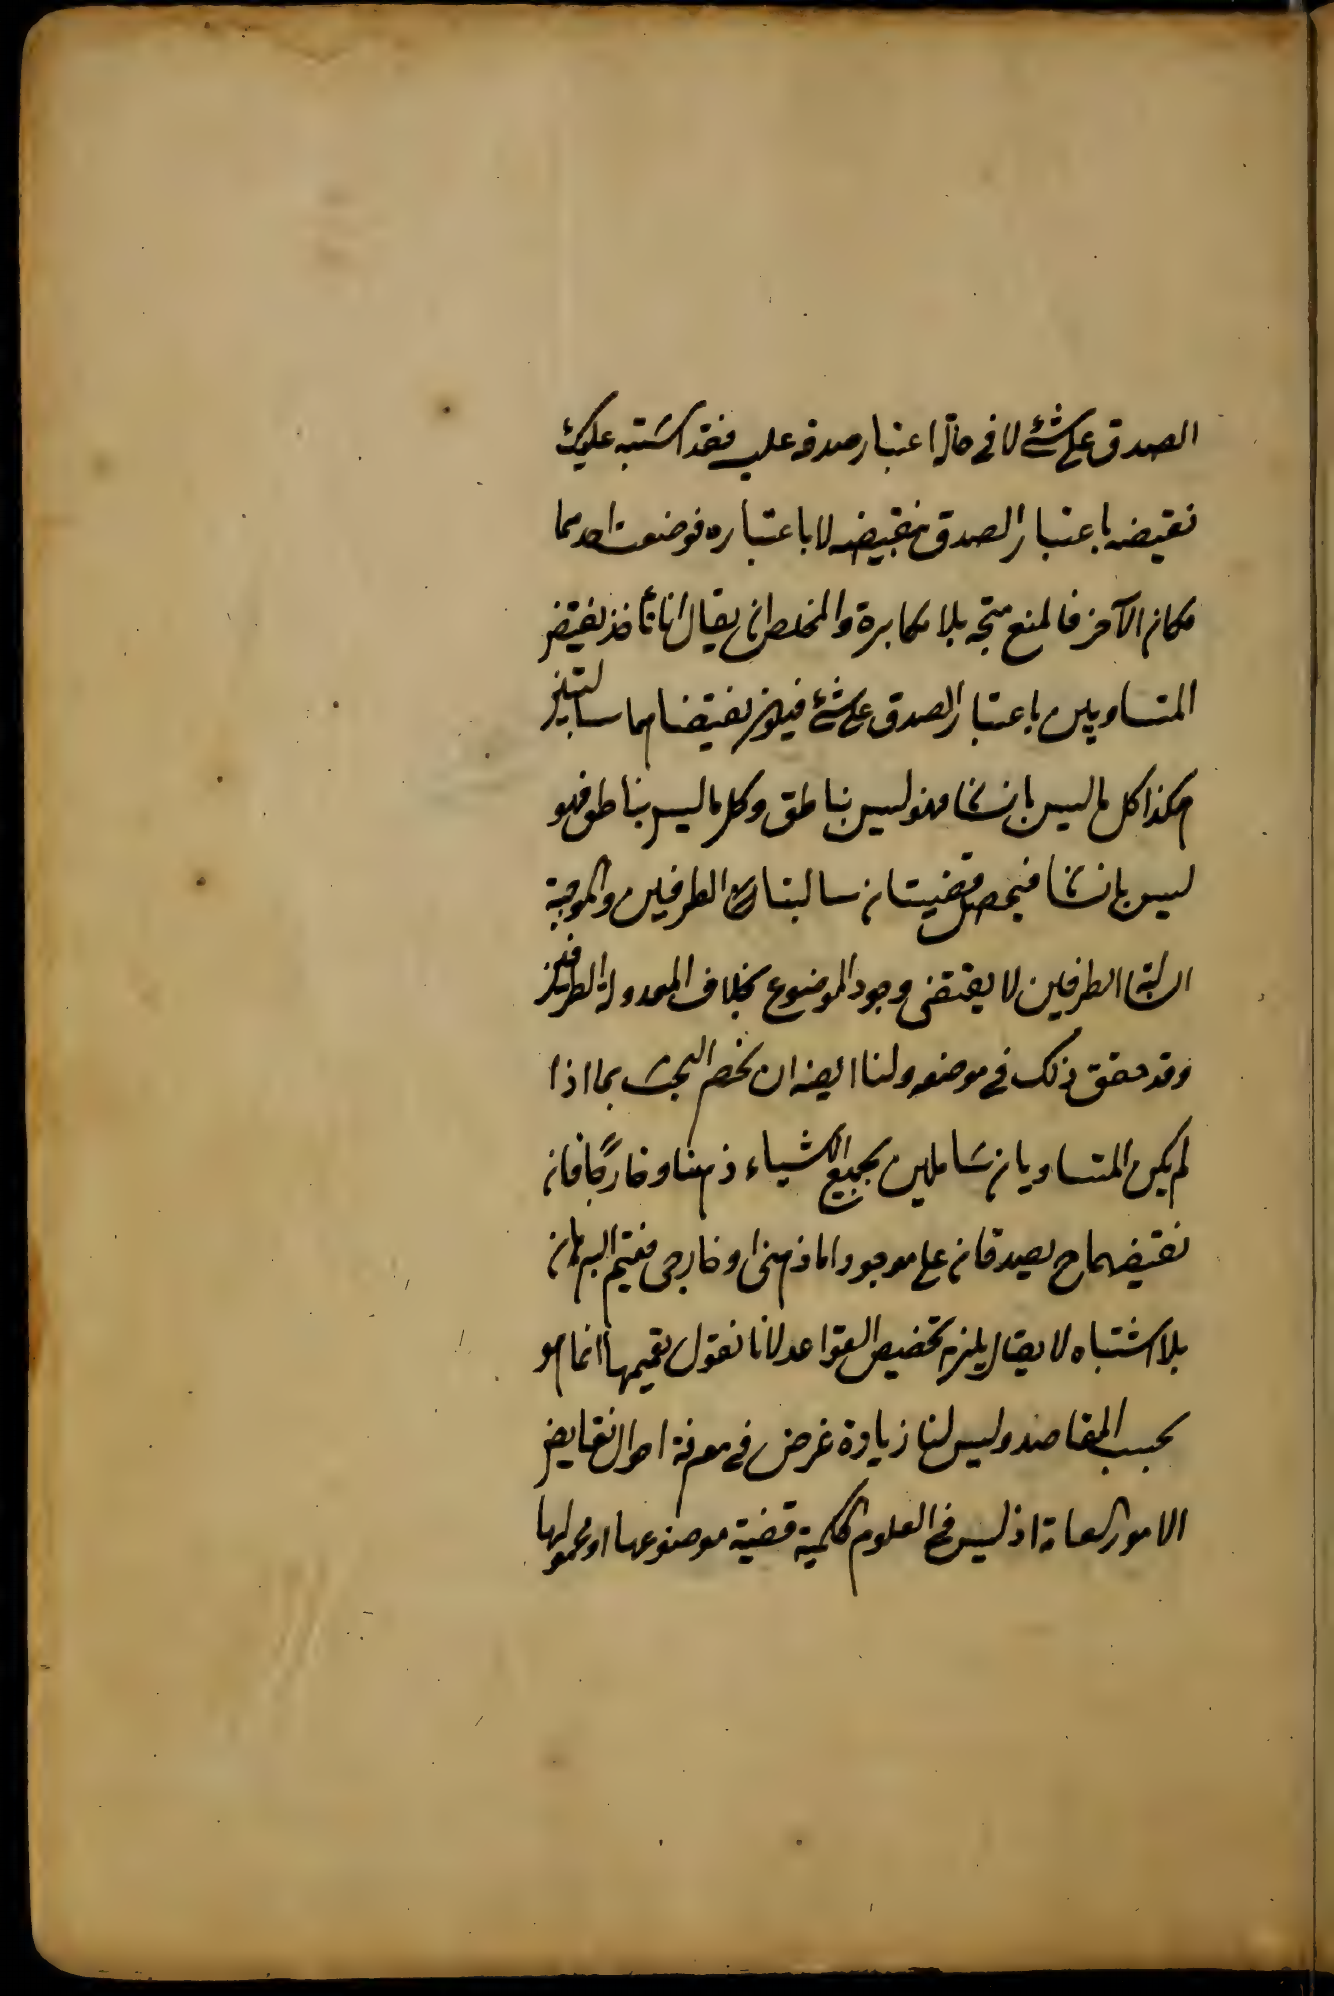 الصدق على شئ لا في حال اعتبار صدقه عليه فقد اشتبه عليك
نقيضه باعتبار الصدق بنقيضه لا باعتباره فوضعت احدهما
مكان الآخر فالمنع متجه بلا مكابرة والمخلص ان يقال انا نأخذ نقيض
المتساويين باعتبار الصدق على شئ فيكون نقيضاهما سالبتين
هكذا كل ما ليس بانسان فهو ليس بناطق وكل ما ليس بناطق فهو
ليس بانسان فيحصل قضيتان سالبتا الطرفين والموجبة
السالبة الطرفين لا يقتضى وجود الموضوع بخلاف المعدولة الطرفين
وقد حقق ذلك في موضعه ولنا ايضا ان نخص البحث بما اذا
لم يكن المتساويان شاملين بجميع الاشياء ذهنا وخارجا فان
نقيضهما ح يصدقان على موجود اما ذهنى او خارجى فيتم البرهان
بلا اشتباه لا يقال يلزم تخصيص القواعد لانا نقول تعميمها انما هو
بحسب المقاصد وليس لنا زيادة غرض في معرفة احوال نقايض
الامور العامة اذ ليس في العلوم الحكمية قضية موضوعها او محمولها